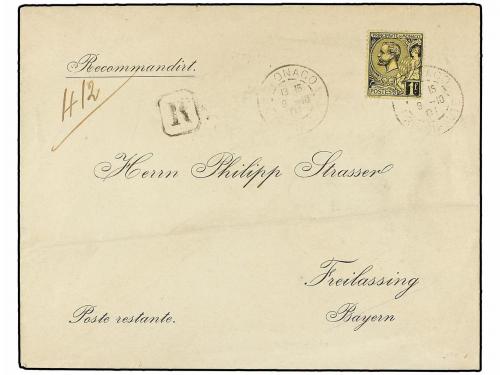 Recommandirt.
412
R
MONACO
13 15
9 -10
PRINCIPAUTÉ DE MONACO
POSTES 1F
MONACO
15
9 -10
Herrn Philipp Strasser
Freilassing
Poste restante.
Bayern